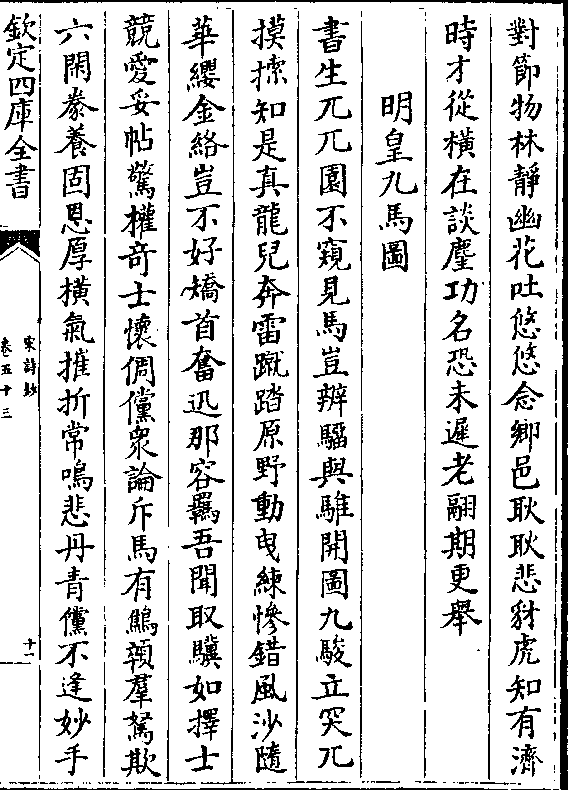 對節物林靜幽花吐悠悠念鄉邑耿耿悲豺虎知有濟
時才從橫在談麈功名恐未遲老翮期更舉
明皇九馬圖
書生兀兀園不窺見馬豈辨騮與騅開圖九駿立突兀
摸㨞知是真龍兒奔雷蹴踏原野動曳練慘錯風沙隨
華纓金絡豈不好驕首奮迅那容羈吾聞取驥如擇士
競愛妥帖驚權奇士懷倜儻衆論斥馬有鷍顙羣駑欺
六閑豢養固恩厚橫氣摧折常鳴悲丹青儻不逢妙手
欽定四庫全書
宋詩鈔
卷五十三
十一